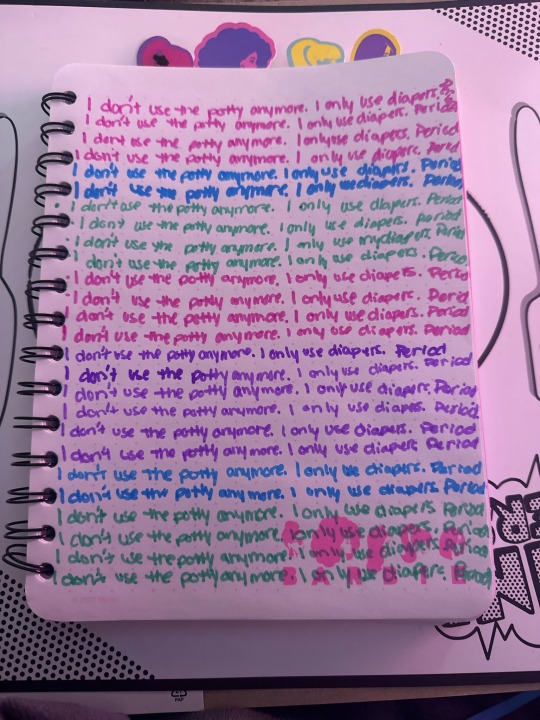 I don't use the potty anymore. I only use diapers.
I don't use the potty anymore. I only use diapers. Period
I dont use the potty anymore. I only use diapers. Period
I don't use the potty anymore. I only use diapers. Period
I don't use the potty anymore. I only use diapers. Period
I don't use the potty anymore. I only use diapers. Period
I don't use the potty anymore. I only use diapers. Period
I don't use the potty anymore. I only use diapers. Period
I don't use the potty anymore. I only use my diapers Period
I don't use the potty anymore. I only use diapers. Period
I don't use the potty anymore. I only use diapers. Period
I don't use the potty anymore. I only use diapers. Period
I don't use the potty anymore. I only use diapers. Period
I don't use the potty anymore. I only use diapers. Period
I don't use the potty anymore. I only use diapers. Period
I don't use the potty anymore. I only use diapers. Period
I don't use the potty anymore. I only use diapers. Period
I don't use the potty anymore. I only use diapers. Period
I don't use the potty anymore. I only use diapers. Period
I don't use the potty anymore. I only use diapers Period
I don't use the potty anymore. I only use diapers. Period
I don't use the potty anymore. I only use diapers. Period
I don't use the potty anymore. I only use diapers. Period
I don't use the potty anymore. I only use diapers. Period
I don't use the potty anymore. I only use diapers. Period
I don't use the potty anymore. I only use diapers. Period